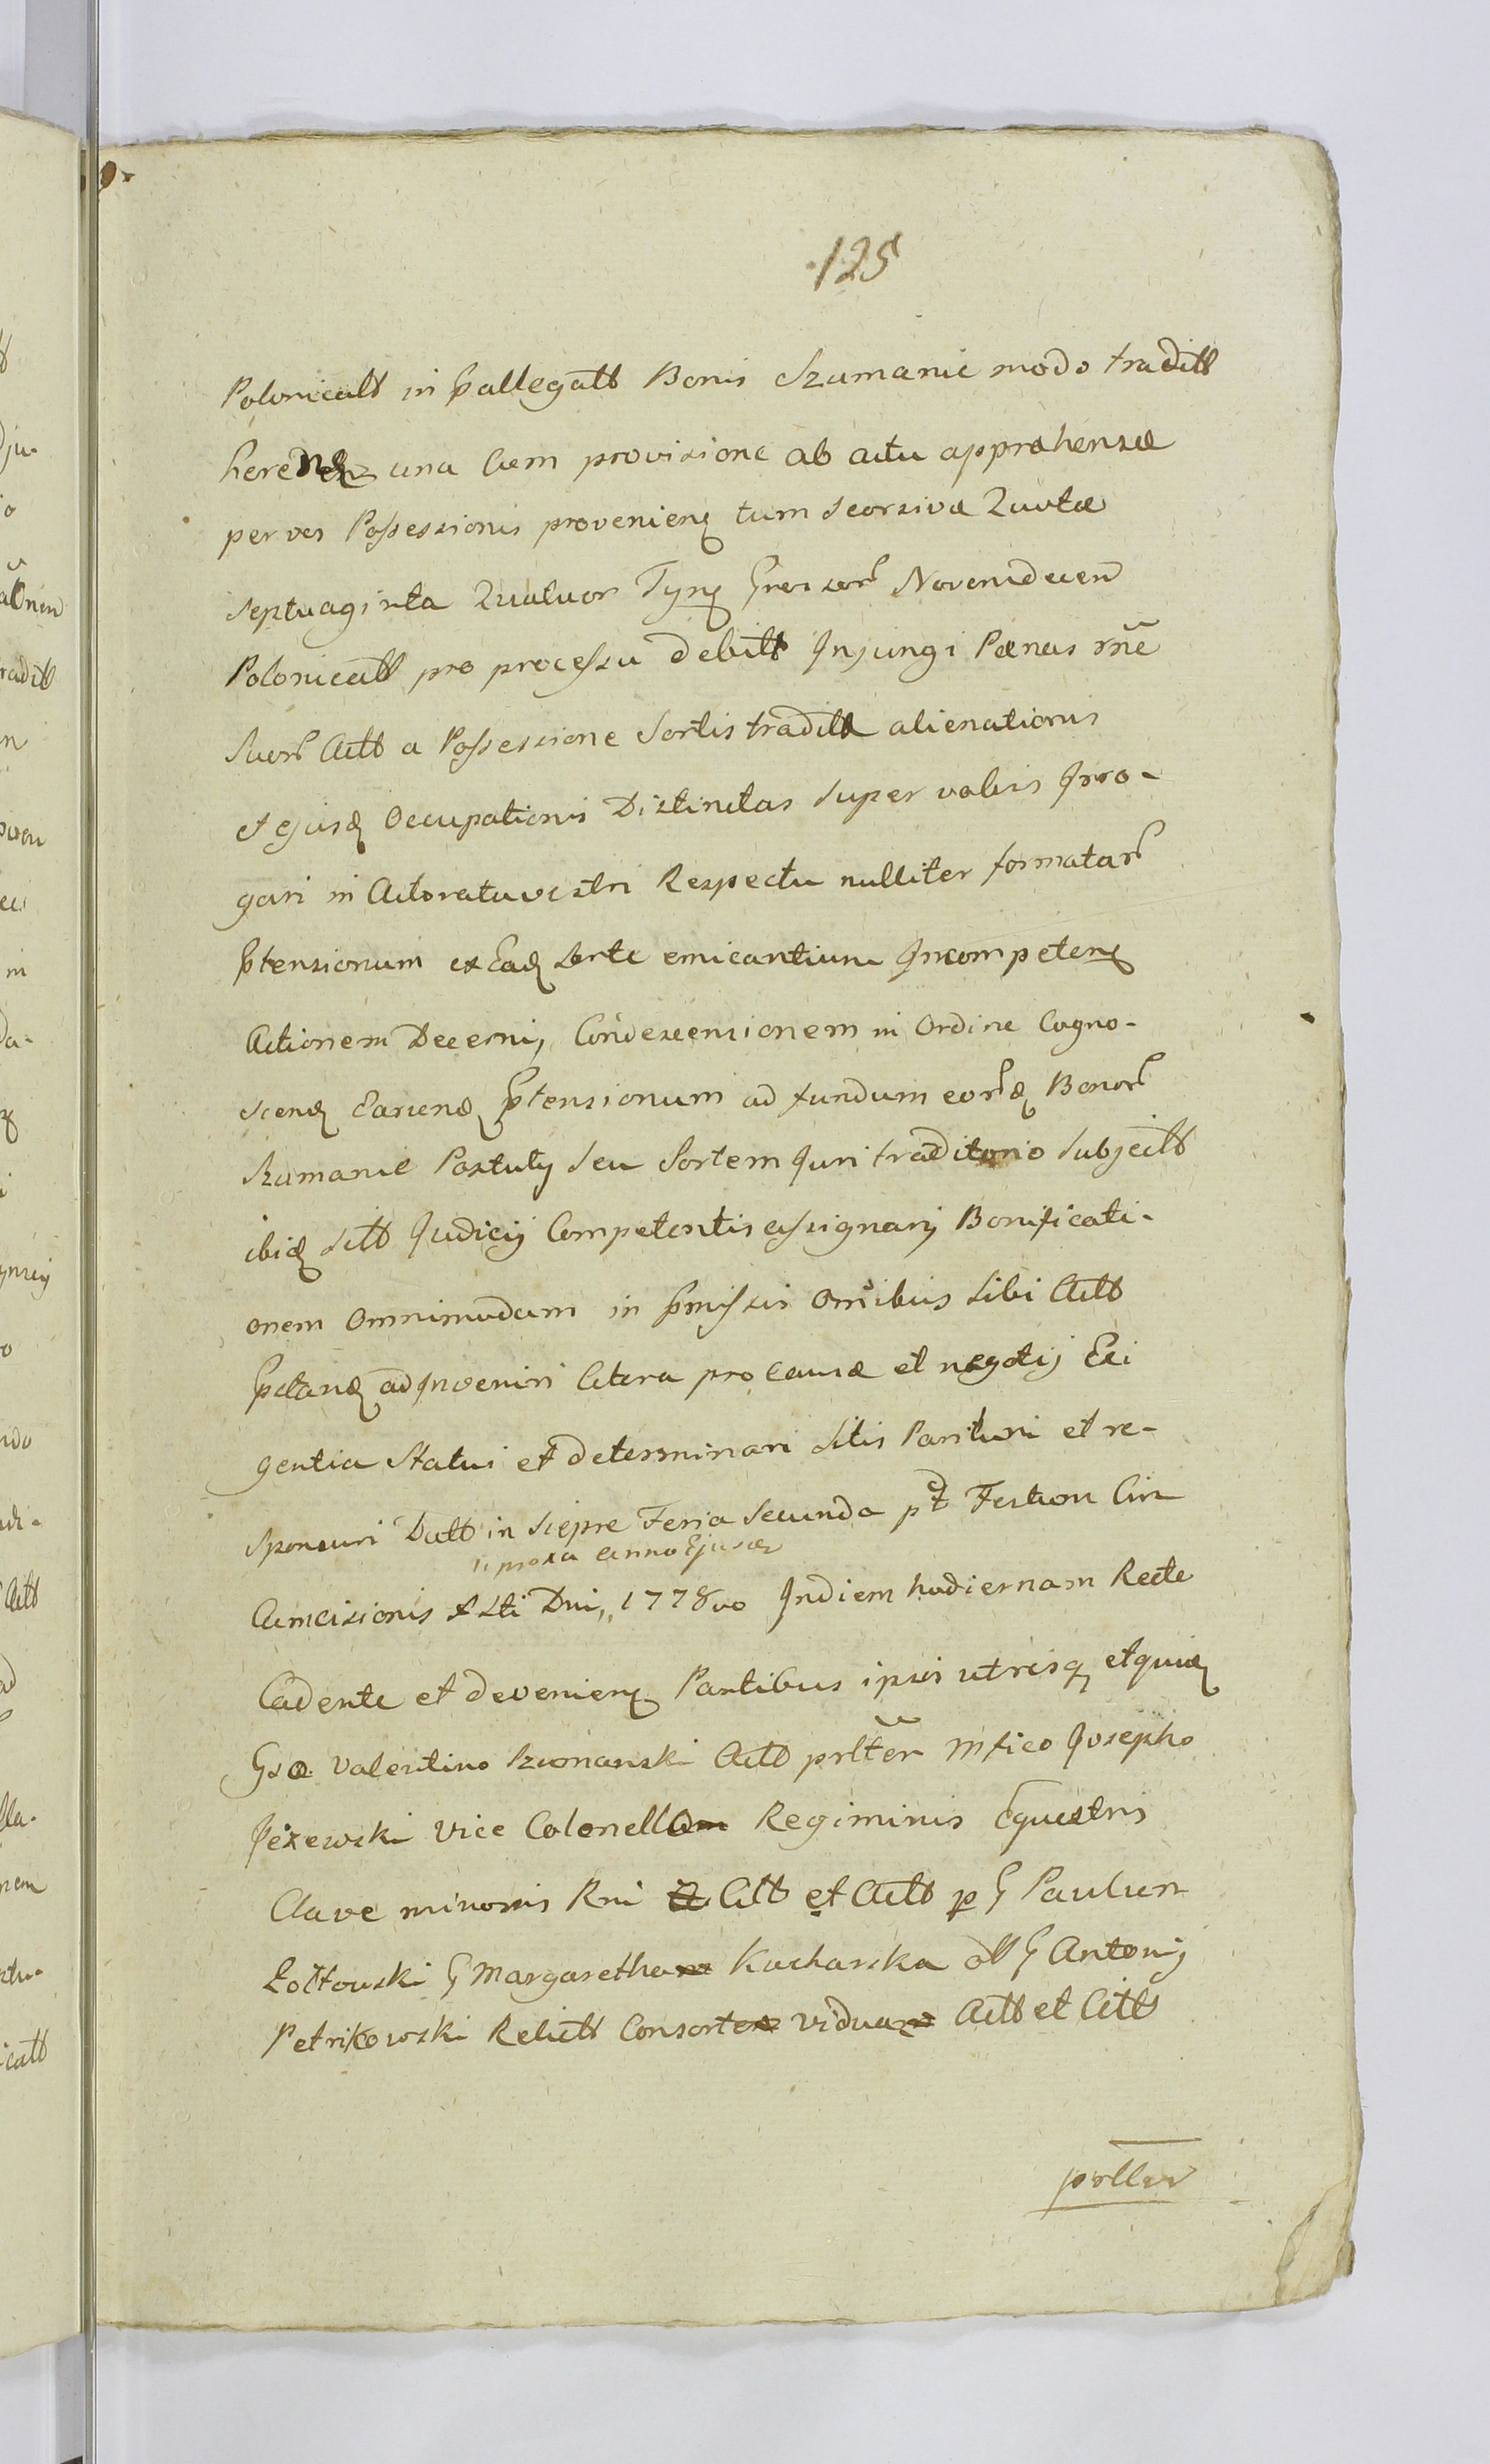 125
Polonicalt in pallegatt Bonis Szumanie modo traditt
herendz una Cum provisione ab actu apprehensæ
per vos Possessionis provenienq tum seorsivæ Quotæ
septuaginta Quatuor Tynq Grossor Novemdecem
Polonicatt pro processu debitt Injungi Pænas rne
Suor Actt a Possessione Sortis traditt alienationis
et ejusd Occupationis Distinctas super vobis Irro-
gari in Actoratu vestri Respectu nulliter formatar
ptensionum ex Ead sorte emicantium Incompetenq
Actionem Decerni, Condescensionem in Ordine Cogno-
scend Earund ptensionum ad fundum eord Bonor
Szumanie Postuly seu Sortem Juri traditorio subjectt
ibid sitt Judicij Competentis assignarj Bonificati-
onem Omnimodam in pmissis Omibus sibi Actt
pstand adjnveniri Cetera pro causæ et negotij Exi
gentia Statui et determinari sitis Parituri et re-
sponsuri Datt in Siepre Feria Secunda pt Festum Cir
" proxa anno Ejusd
Cumcisionis Xsti Dni „ 1778vo Indiem hodiernam Recte
Cadente et devenienq Partibus ipsis utrisq, et quid
Gso Valentino Szumanski Actt prltter Mfico Josepho
Jeżewski Vice Colonello Regiminis Equestris
Clave minoris Rni Citt et Actt p G Paulum
Żołtowski G Margaretha Kucharska ott G Antonij
Petrikowski Relictt Consorte vidua Actt et Citt
prtter